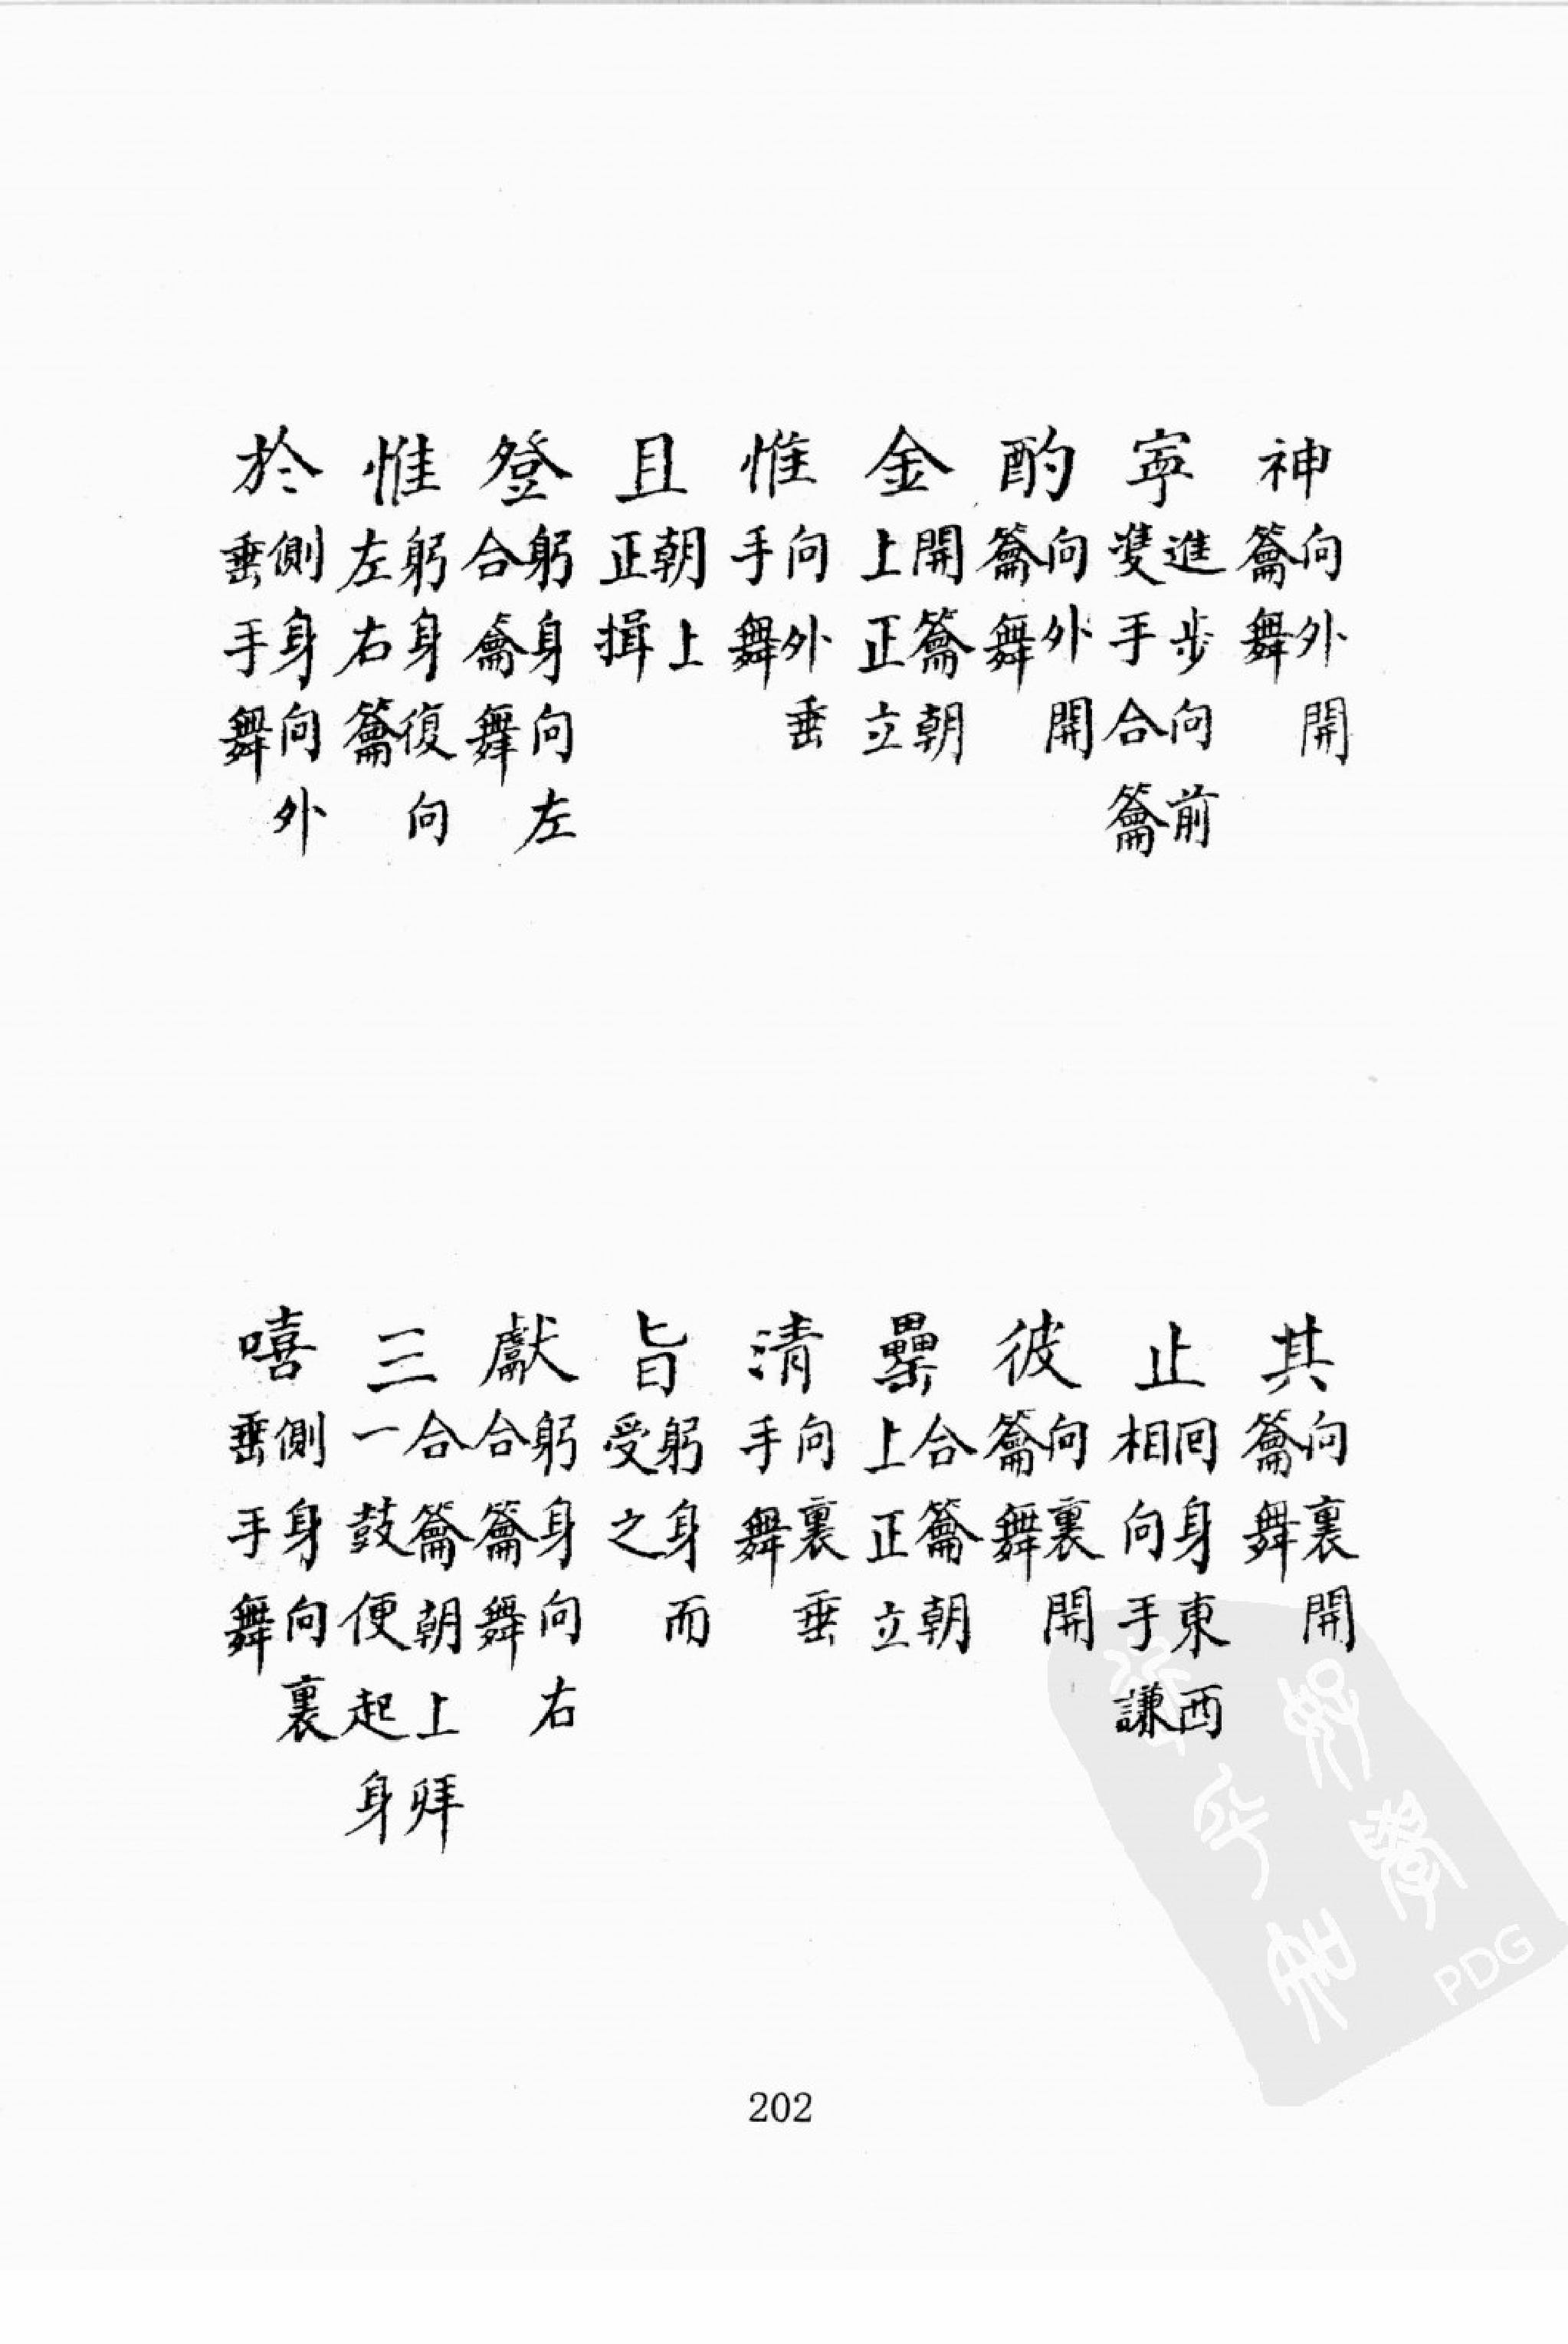 神向外開籥舞　其向裏開籥舞
寜進步向前雙手合籥　止回身東西相向手謙
酌向外開籥舞　彼向裏開籥舞
金開籥朝上正立　罍合籥朝上正立
惟向外垂手舞　清向裏垂手舞
且朝上正揖　旨躬身而受之
登躬身向左合籥舞　獻躬身向右合籥舞
惟躬身復向左右籥　三合籥朝上拜一鼓便起身
於側身向外垂手舞　嘻側身向裏垂手舞
202
PDG